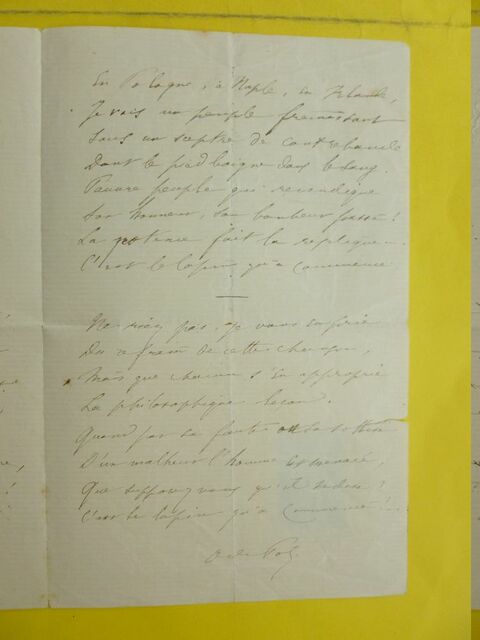 En Pologne, à Naple, en Irlande,
Je vois un peuple frémissant
Sous un sceptre de contrebande
Dont le pied baigne dans le sang.
Pauvre peuple qui revendique
Son honneur, son bonheur passé!
La potence fait la réplique
C'est le lapin qu'a commencé
Ne riez pas, je vous en prie
Du refrain de cette chanson,
Mais que chacun s'en approprie
La philosophique leçon.
Quand par sa faute ou sa sottise
D'un malheur l'homme est menacé,
Que supposez vous qu'il se dise?
C'est le lapin qu'a commencé.